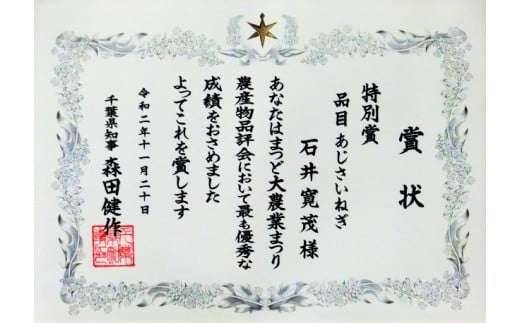 賞状
特別賞
品目 あじさいねぎ
石井寛茂様
あなたはまつど大農業まつり
農産物品評会において最も優秀な
成績をおさめました
よってこれを賞します
令和二年十一月二十日
千葉県知事 森田健作